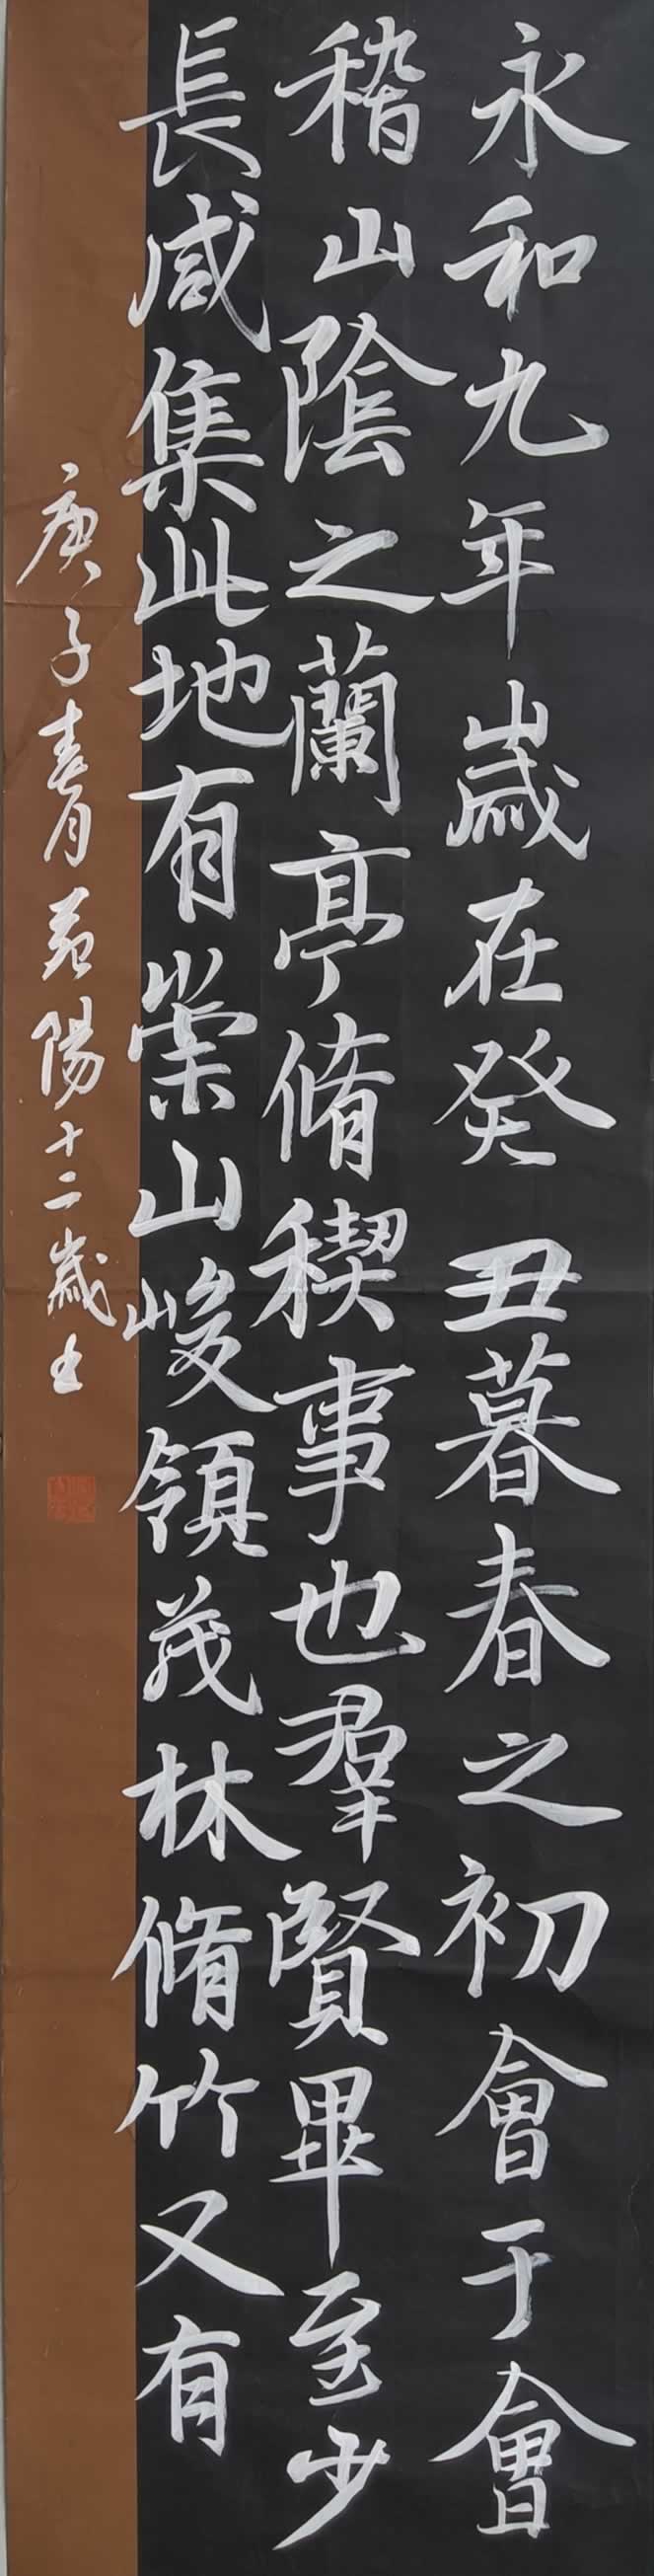 永和九年歲在癸丑暮春之初會于會
稽山陰之蘭亭脩稧事也羣賢畢至少
長咸集此地有崇山峻領茂林脩竹又有
庚子春月 陽十二歲书